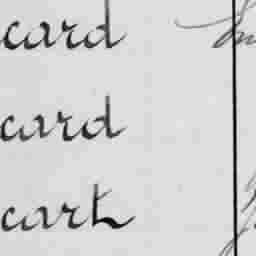 card
card
cart